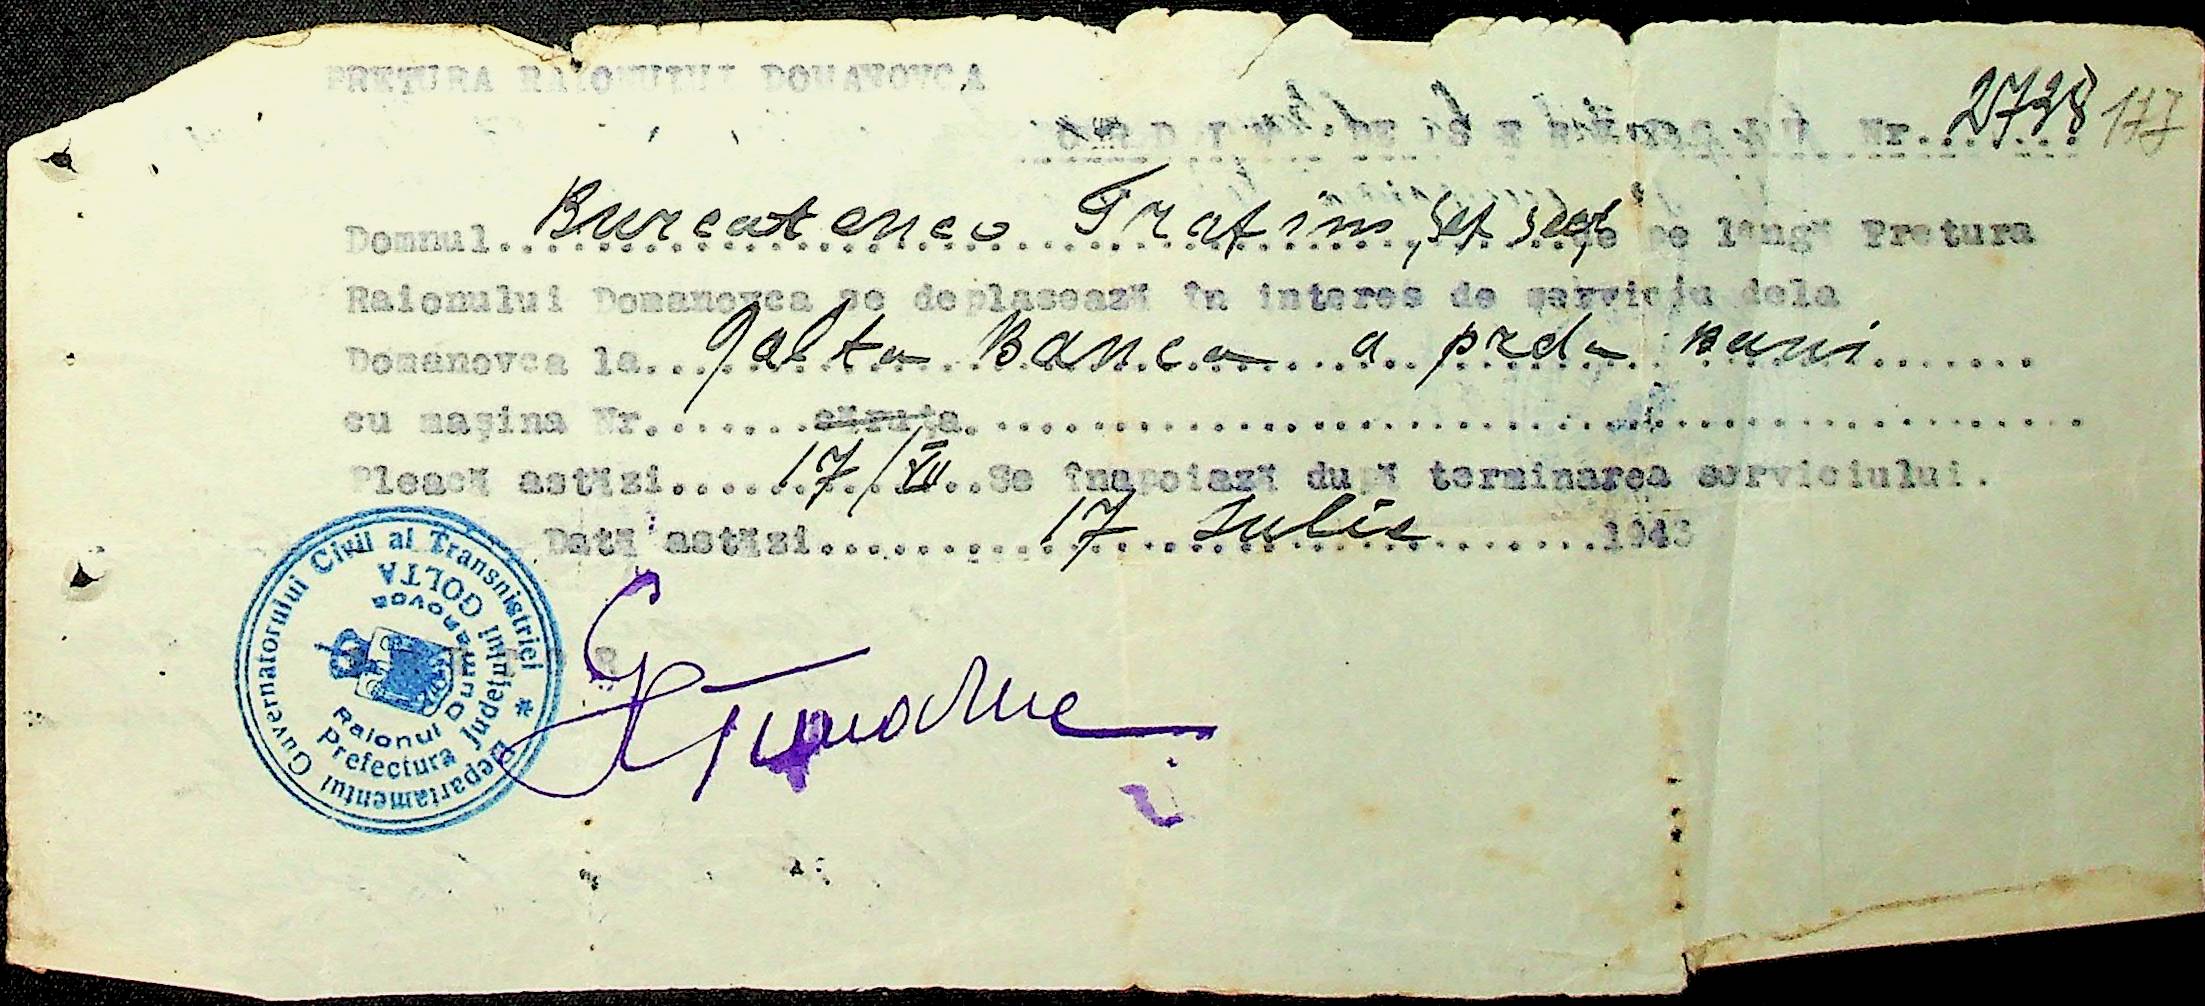 PRETURA RAIONULUI DOMANOVCA
ORDIN DE SERVICIU Nr. 2728 177
Domnul Burcatenco Trofim, șef secț de pe lîngă Pretura
Raionului Domanovca se deplasează în interes de serviciu dela
Domanovca la Golta Banca a preda bani
cu mașina Nr. căruța
Pleacă astăzi 17/VII Se înapoiază după terminarea serviciului.
Dată astăzi 17 Iulie 1943
Guvernatorului Civil al Transnistriei * Departamentul
Prefectura Județului GOLTA
Raionul Domanovca